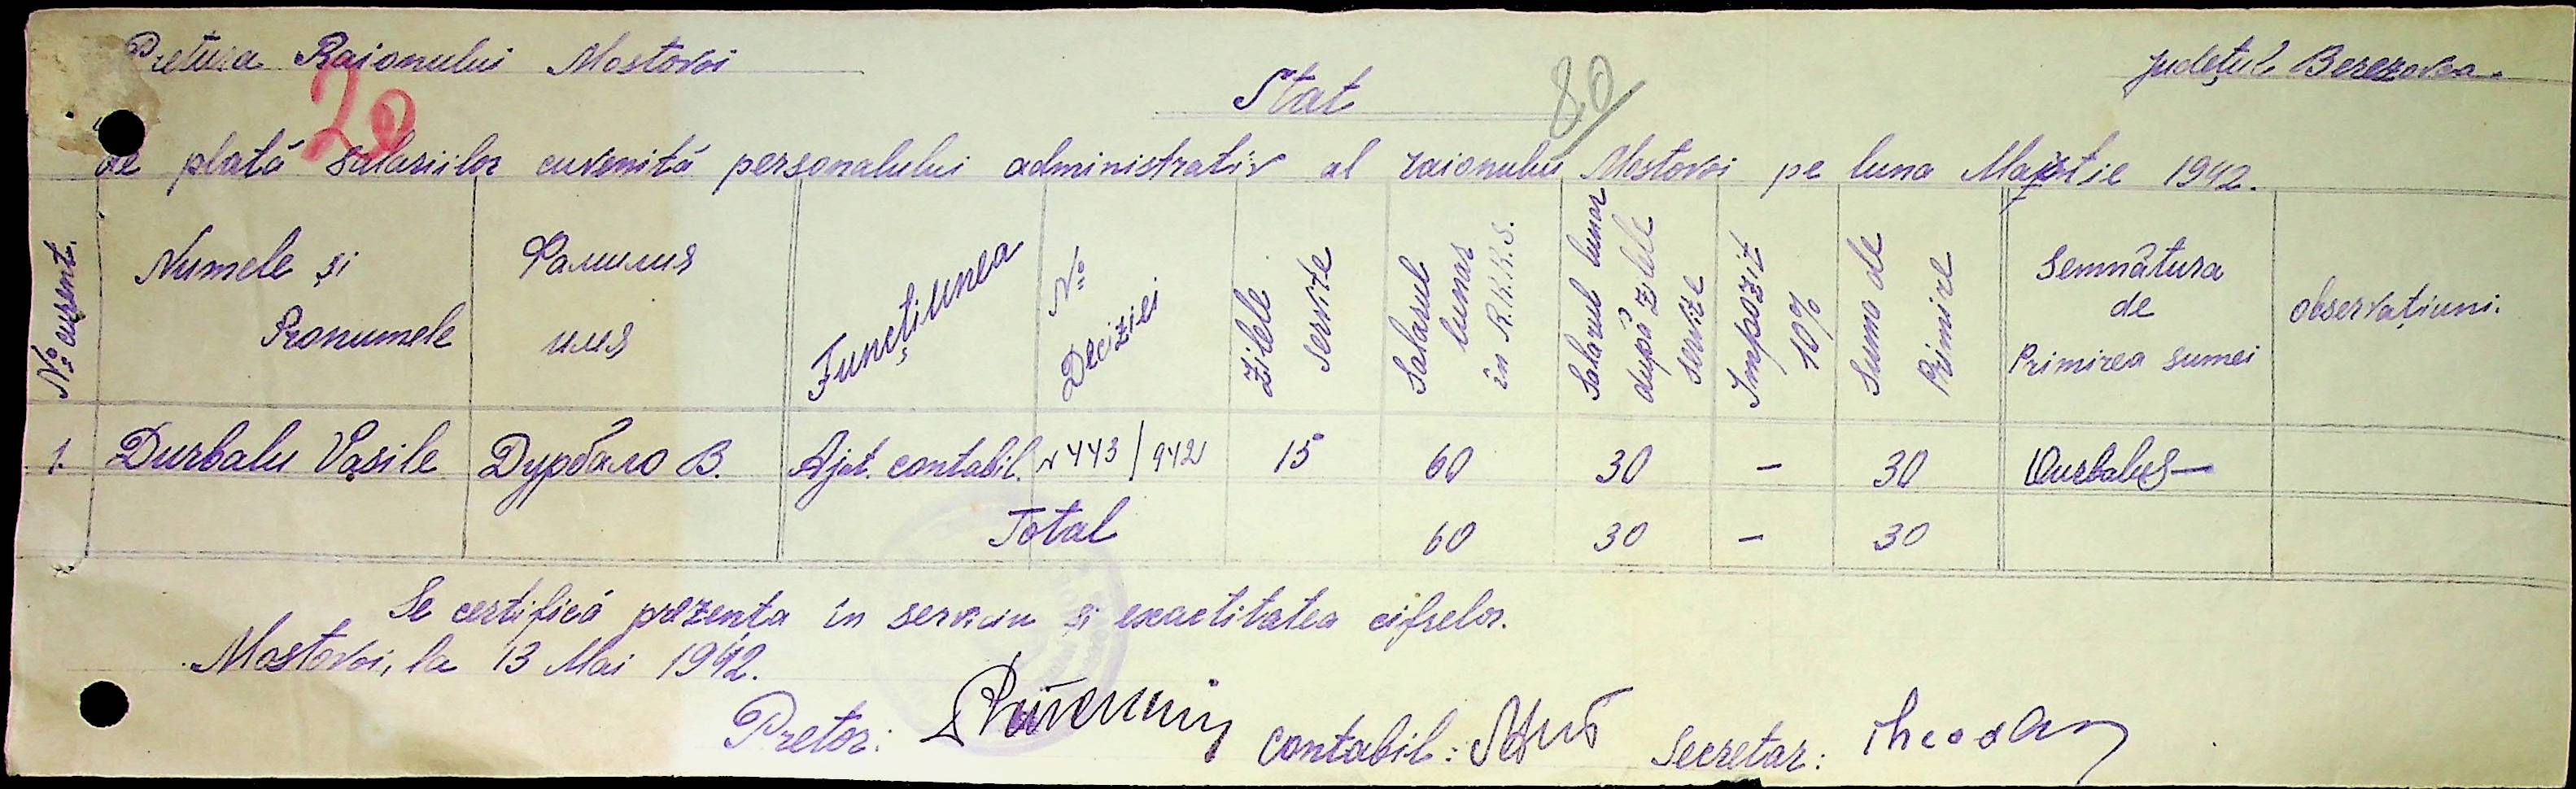 Pretura Raionului Mostovoi
județul Berezovca.
20
Stat
80
de plată salariilor cuvenită personalului administrativ al raionului Mostovoi pe luna Martie 1942.
No curent.
Numele și Pronumele
Фамилия имя
Funcțiunea
No Deciziei
Zilele servite
Salarul lunar în R.K.K.S.
Salarul lunar după zilele servite
Impozit 10%
Suma de Primire
Semnătura de Primirea sumei
observațiuni.
1. Durbalu Vasile Дурбало В. Ajut. contabil. 443/942 15 60 30 – 30 Durbalu
Total 60 30 – 30
Se certifică prezența în serviciu și exactitatea cifrelor.
Mostovoi, la 13 Mai 1942.
Pretor: contabil: Secretar: